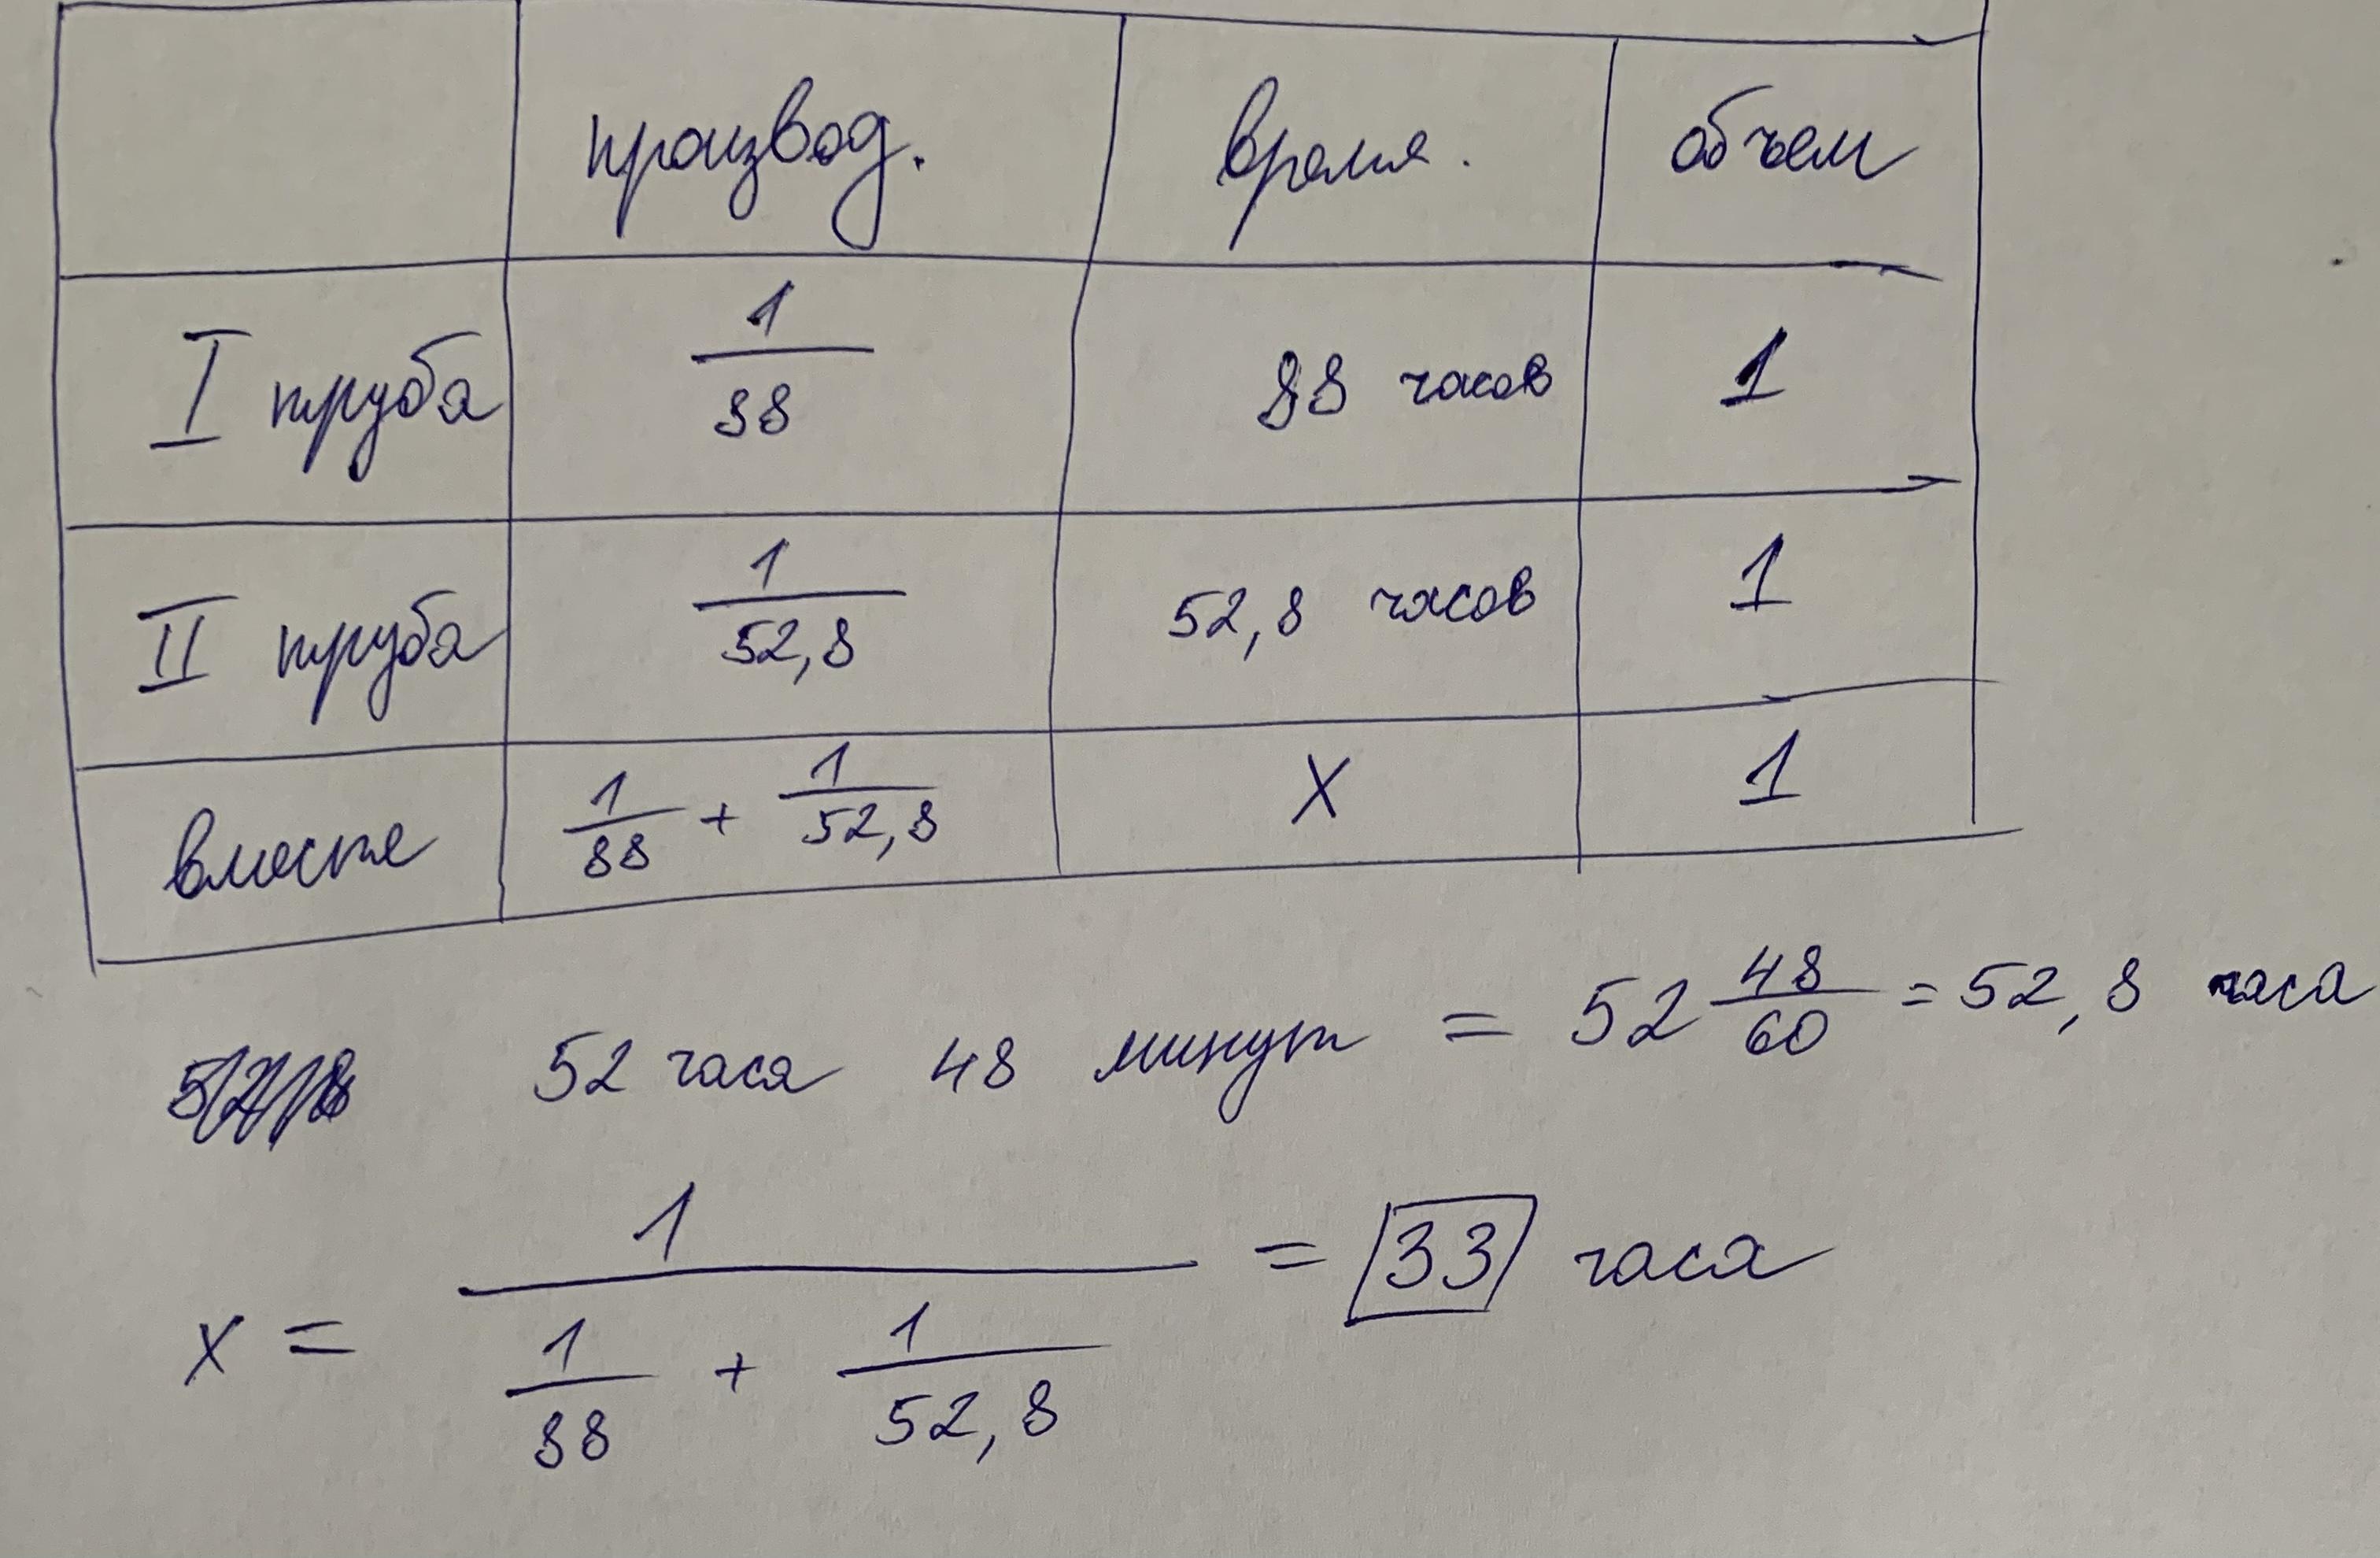 производ. время. объем
I труба 1/88 88 часов 1
II труба 1/52,8 52,8 часов 1
вместе 1/88 + 1/52,8 X 1
52 часа 48 минут = 52 48/60 = 52,8 часа
x = 1/(1/88 + 1/52,8) = 33 часа